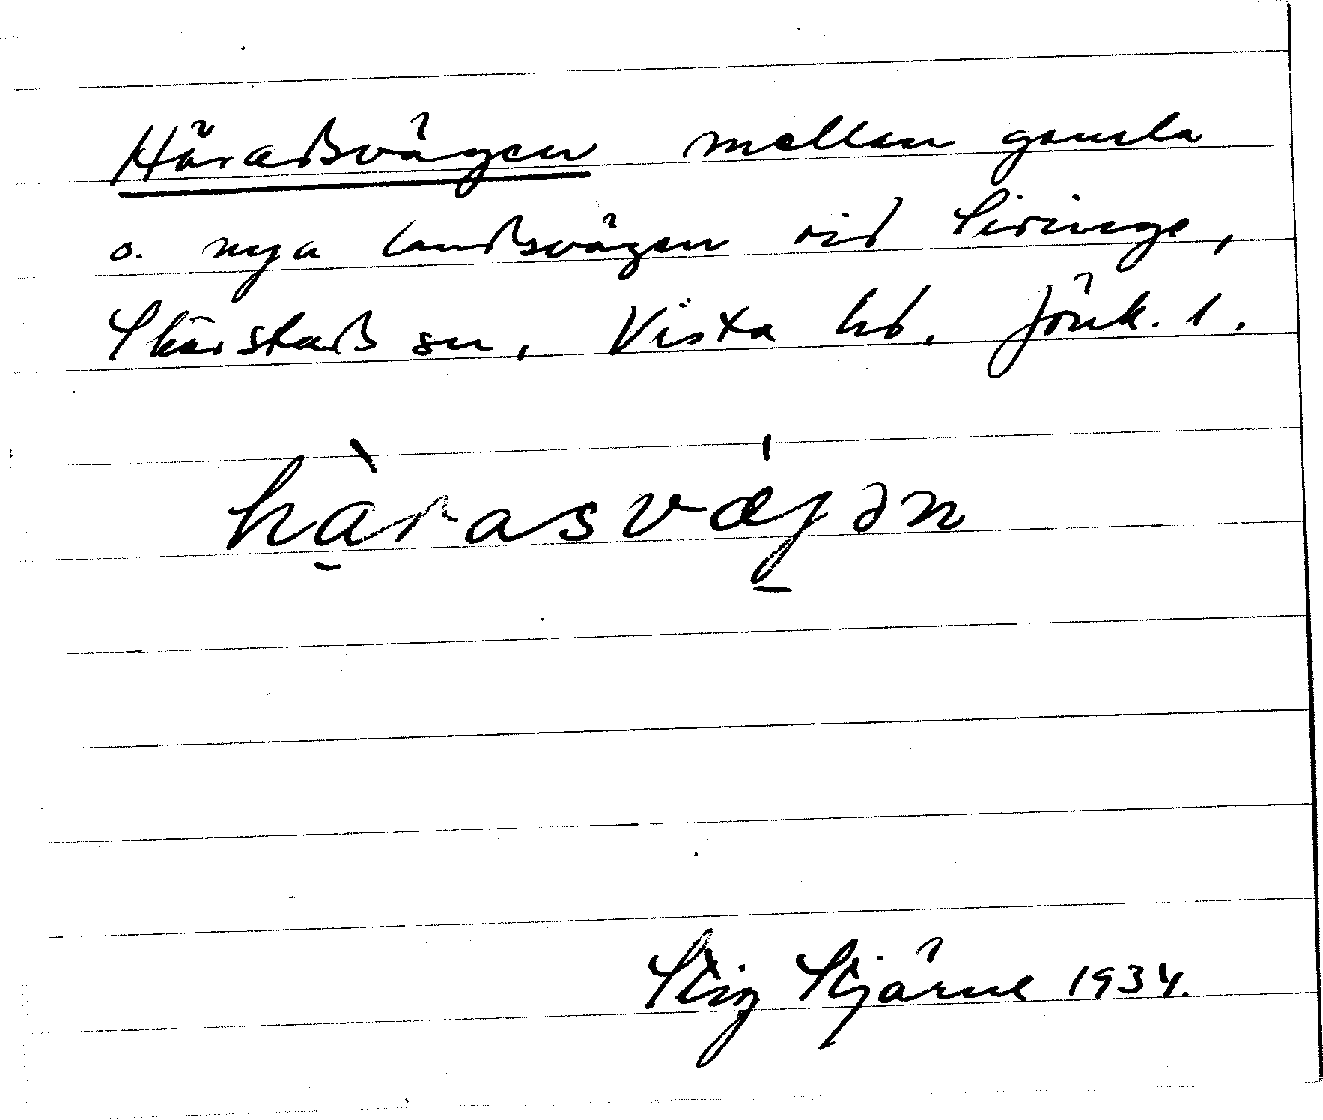 Häradsvägen mellan gamla
o. nya landsvägen vid Siringe,
Skärstads sn, Vista hd. Jönk. l.
hàrasvæ̍jən
Stig Stjärne 1934.